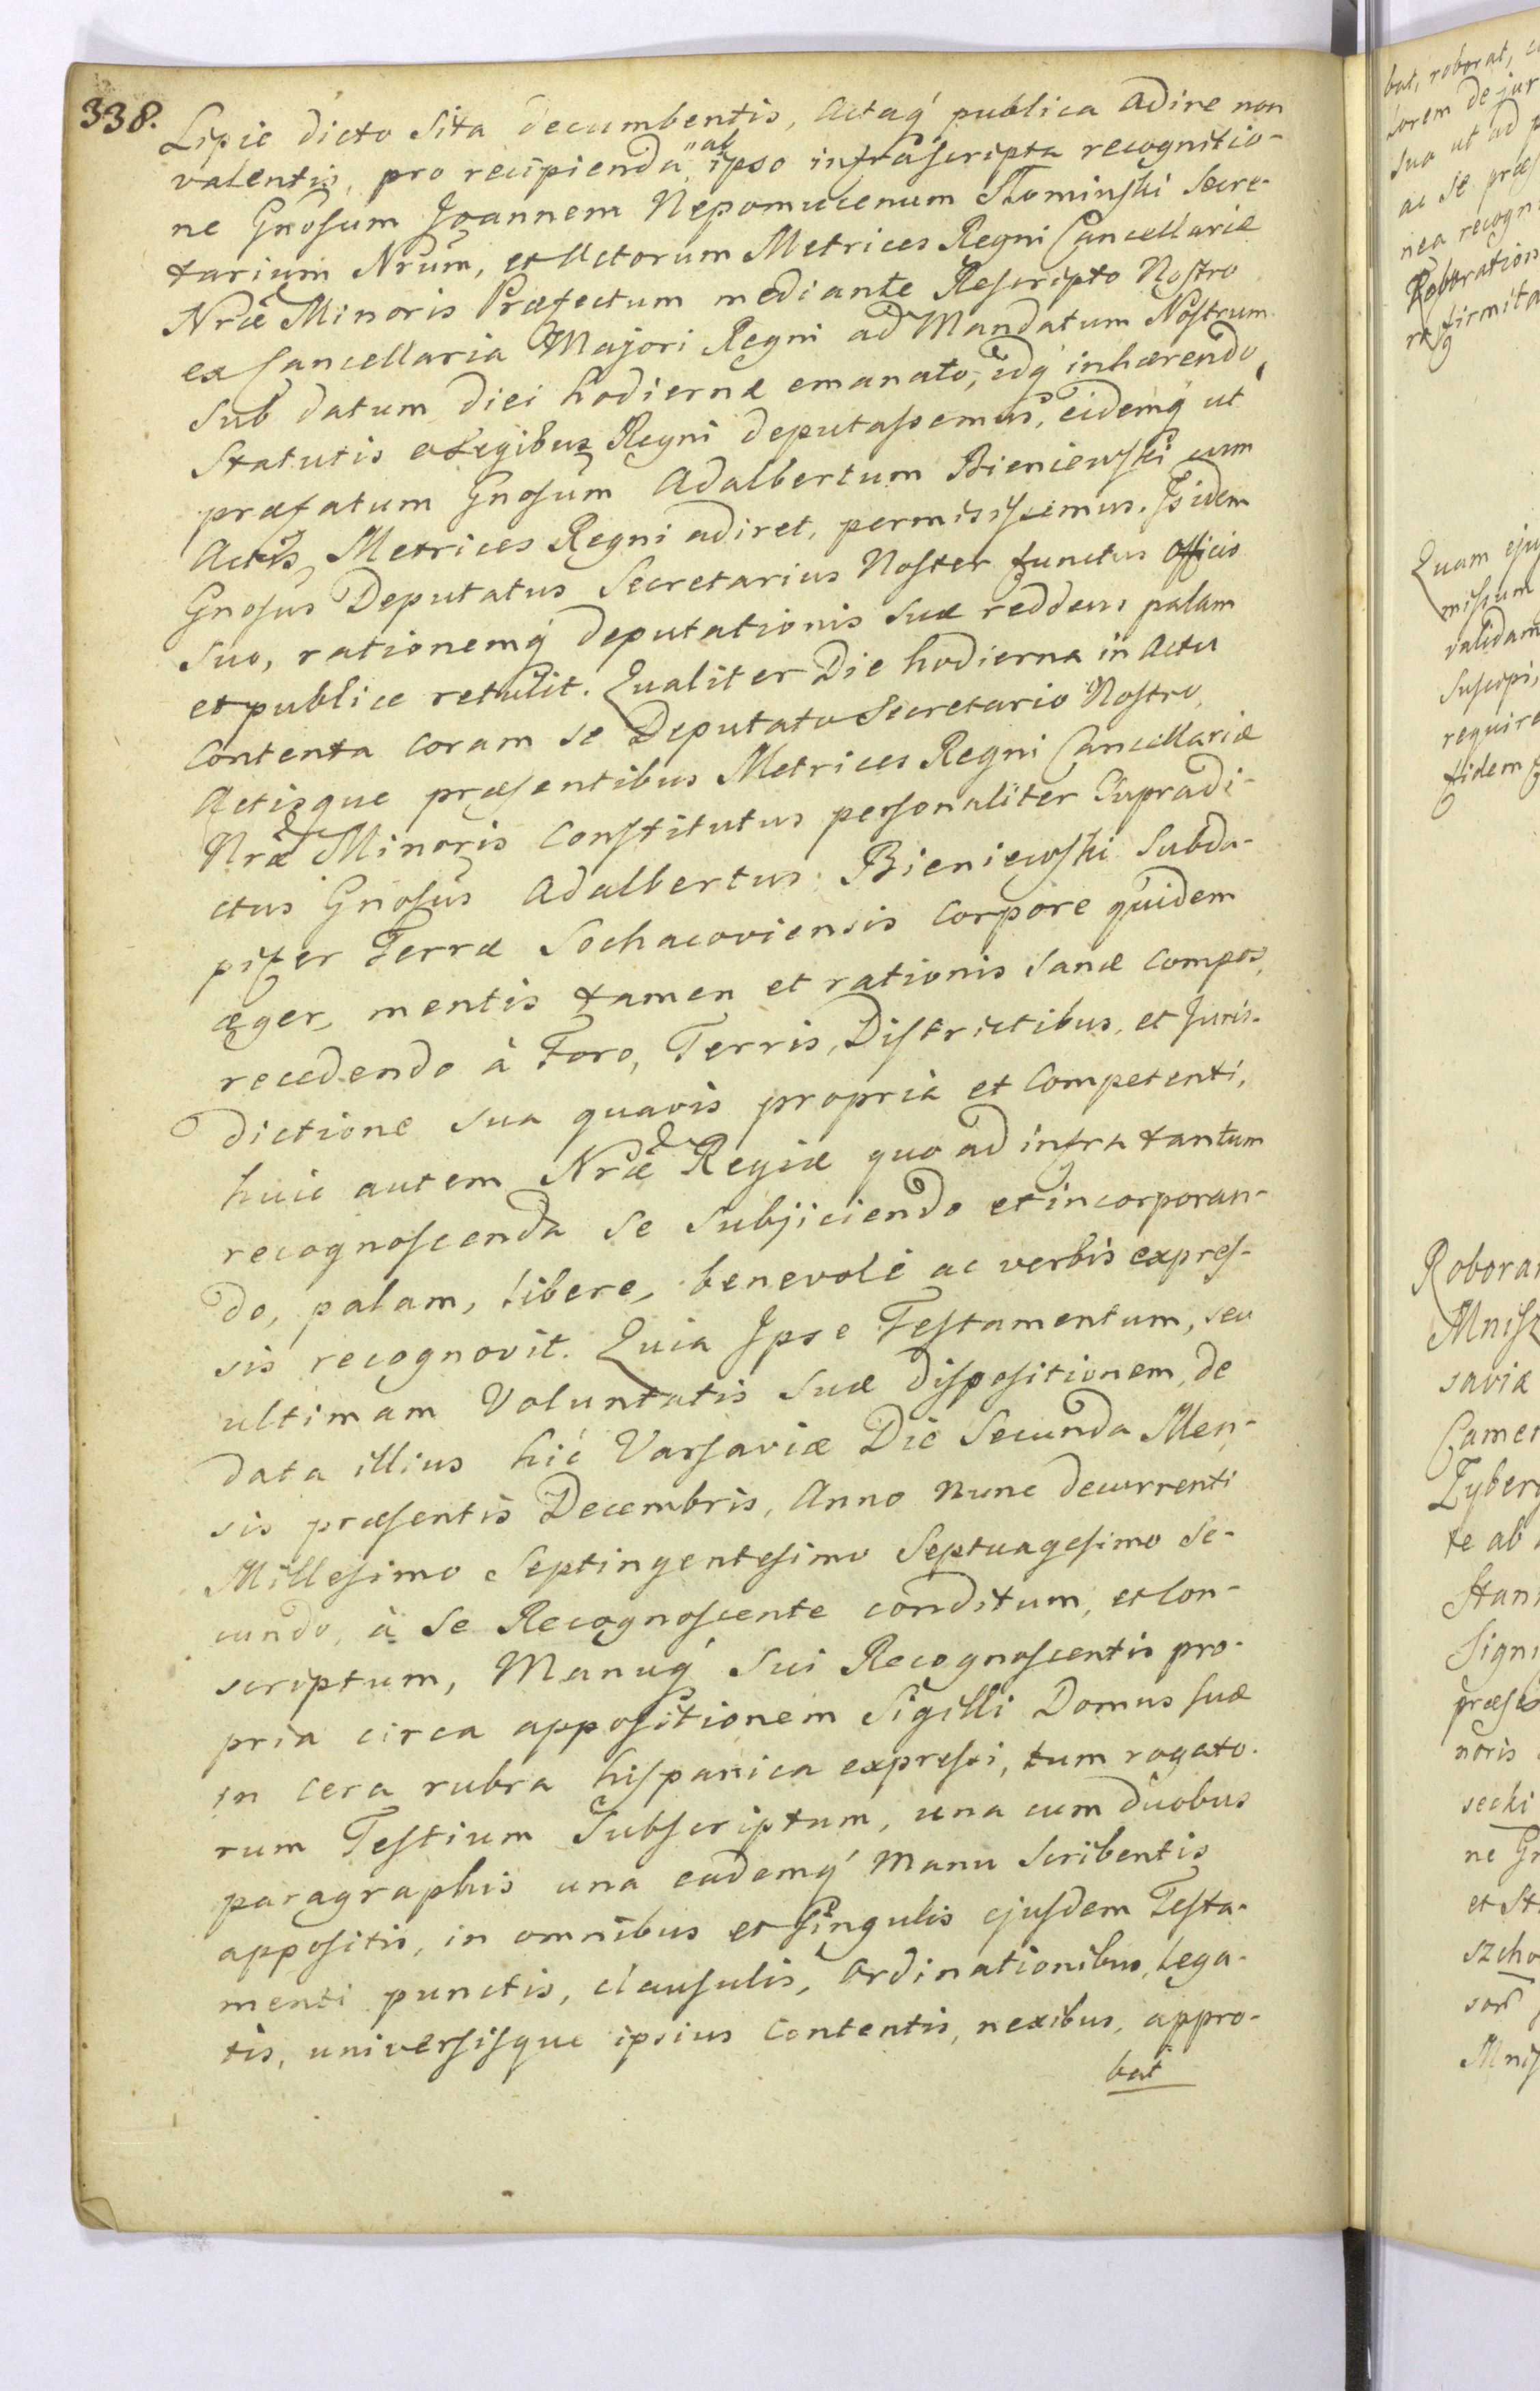 338.
Lipie dicto Sita decumbentis, Actaq́ publica adire non
valentis, pro recipienda "ab ipso infrascripta recognitio-
ne Gnosum Joannem Nepomucenum Słominski Secre-
tarium Nrum, et Actorum Metrices Regni Cancellariæ
Nræ Minoris Præfectum mediante Rescripto Nostro
ex Cancellaria Majori Regni ad Mandatum Nostrum
sub datum diei hodiernæ emanato, idq́ inhærendo
Statutis et Legibus Regni deputassemus, eidemq́ ut
præfatum Gnosum Adalbertum Bieniewski cum
Actis Metrices Regni adiret, permisissemus. Isidem
Gnosus Deputatus Secretarius Noster functus Officio
suo, rationemq́ deputationis suæ reddens palam
et publice retulit. Qualiter Die hodierna in Actu
Contenta coram se Deputato Secretario Nostro,
Actisque præsentibus Metrices Regni Cancellariæ
Nræ Minoris Constitutus personaliter Supradi-
ctus Gnosus Adalbertus Bieniewski Subda-
pifer Terræ Sochacoviensis Corpore quidem
æger, mentis tamen et rationis sanæ compos,
recedendo à Foro, Terris, Districtibus, et Juris-
dictione sua quavis propria et Competenti,
huic autem Nræ Regiæ quo ad infra tantum
recognoscenda se subjiciendo et incorporan-
do, palam, libere, benevolè ac verbis expres-
sis recognovit. Quia Ipse Testamentum, seu
ultimam Voluntatis suæ dispositionem, de
data illius hic Varsaviæ Die Secunda Men-
sis præsentis Decembris, Anno nunc decurrenti
Millesimo Septingentesimo Septuagesimo Se-
cundo, à se Recognoscente conditum, et Con-
scriptum, Manuq́ sui Recognoscentis pro-
pria circa appositionem Sigilli Domus suæ
in cera rubra hispanica expressi, tum rogato-
rum Testium Subscriptum, una cum duobus
paragraphis una eademq́ Manu Scribentis
appositis, in omnibus et singulis ejusdem Testa-
menti punctis, clausulis, Ordinationibus, Lega-
tis, universisque ipsius Contentis, nexibus, appro-
bat
bat, roborat,
lorem de jur
suo ut ad p
ac se præs
nea recogn
Roboration
firmita
Quam eju
missum
validam
suscepi,
require
fidem
Roborat
Mnisz
saviæ
Camer
Zyber
te ab
Stan
Sign
præse
noris
secki
ne Gn
et St
szcho
Mnis